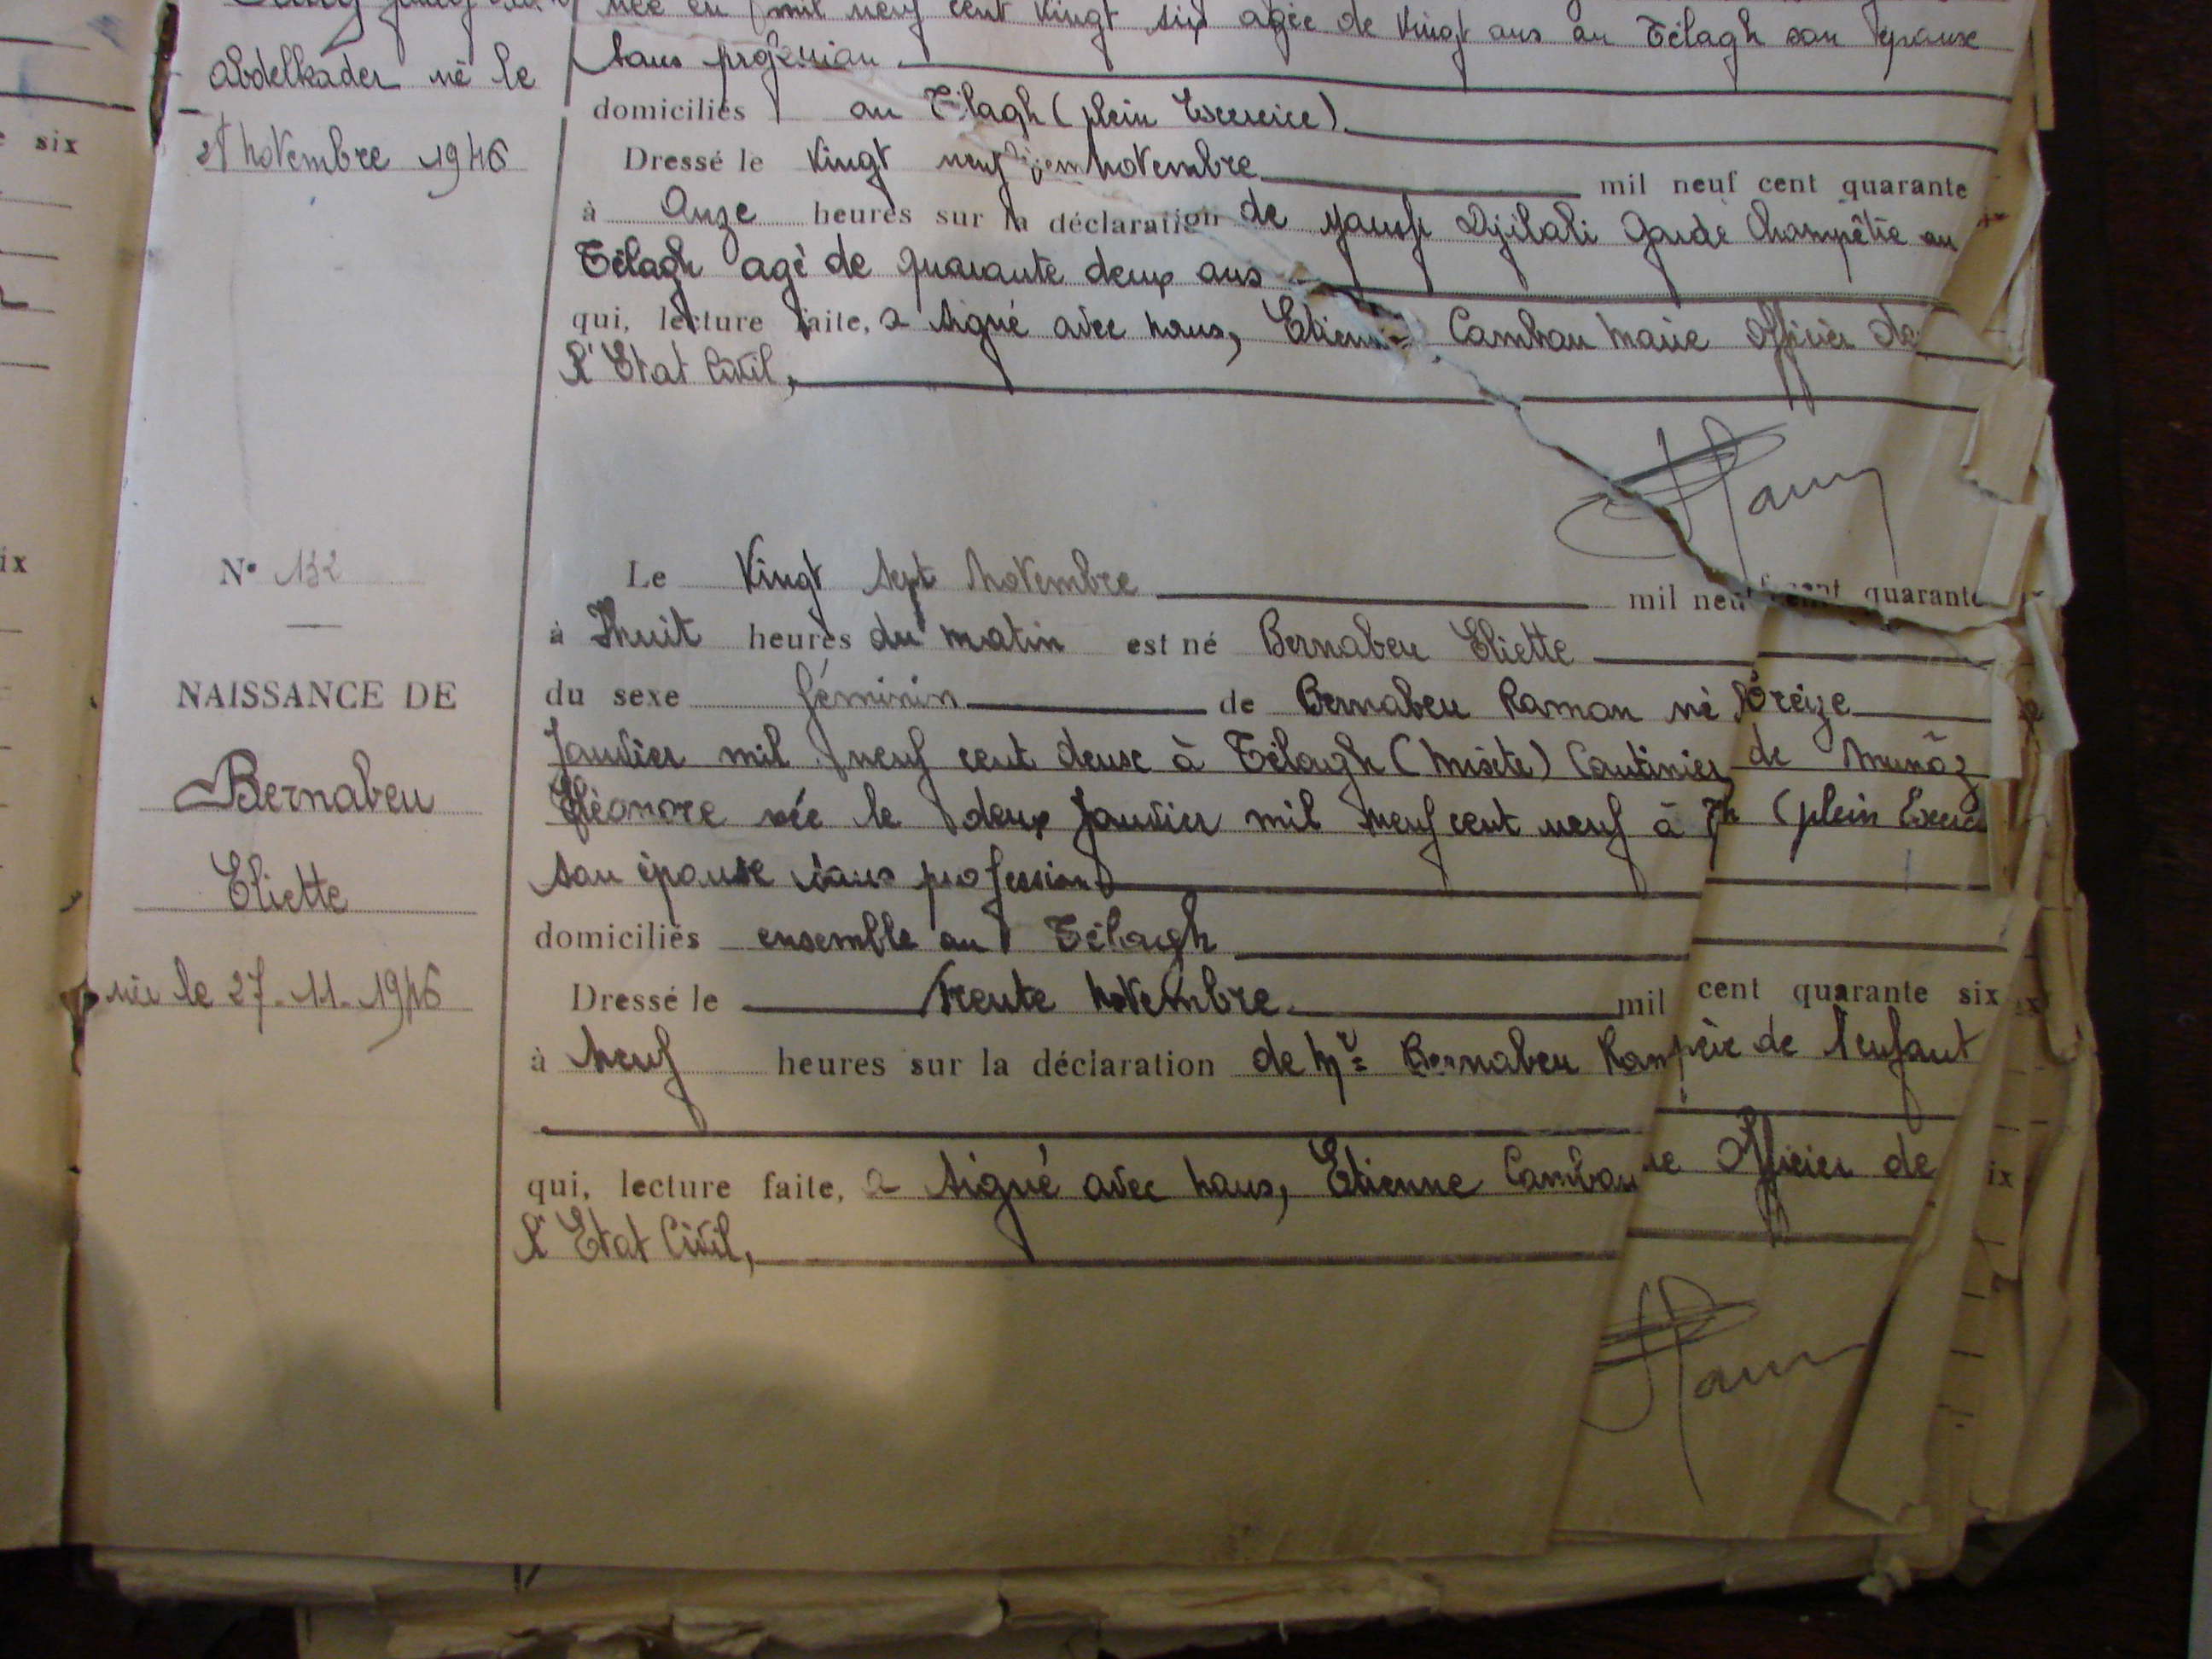 née en mil neuf cent vingt six agée de vingt ans au Télagh son épouse
Abdelkader né le
sans
novembre 1946
domiciliés au Télagh (plein Exercice)
six
Dressé le vingt neuf novembre mil neuf cent quarante
à Onze heures sur la déclaration de Djilali Garde Champêtre au
Télagh agé de quarante deux ans
qui, lecture faite, a signé avec nous, Etienne Cambon Maire Officier de
l'Etat Civil,
ix
N° 132
Le vingt sept novembre mil neuf cent quarante
à Huit heures du matin est né Bernabeu Eliette
NAISSANCE DE
du sexe féminin de Bernabeu Ramon né treize
Bernabeu
Janvier mil neuf cent deux à Télagh (Mixte) Cantinier de Munõz
Eléonore née le deux Janvier mil neuf cent neuf à (plein
Eliette
son épouse sans profession
domiciliés ensemble au Télagh
née le 27-11-1946
Dressé le trente novembre mil cent quarante six
à neuf heures sur la déclaration de Mr Bernabeu Ram père de l'enfant
qui, lecture faite, a signé avec nous, Etienne Cambon re Officier de
l'Etat Civil,
ix